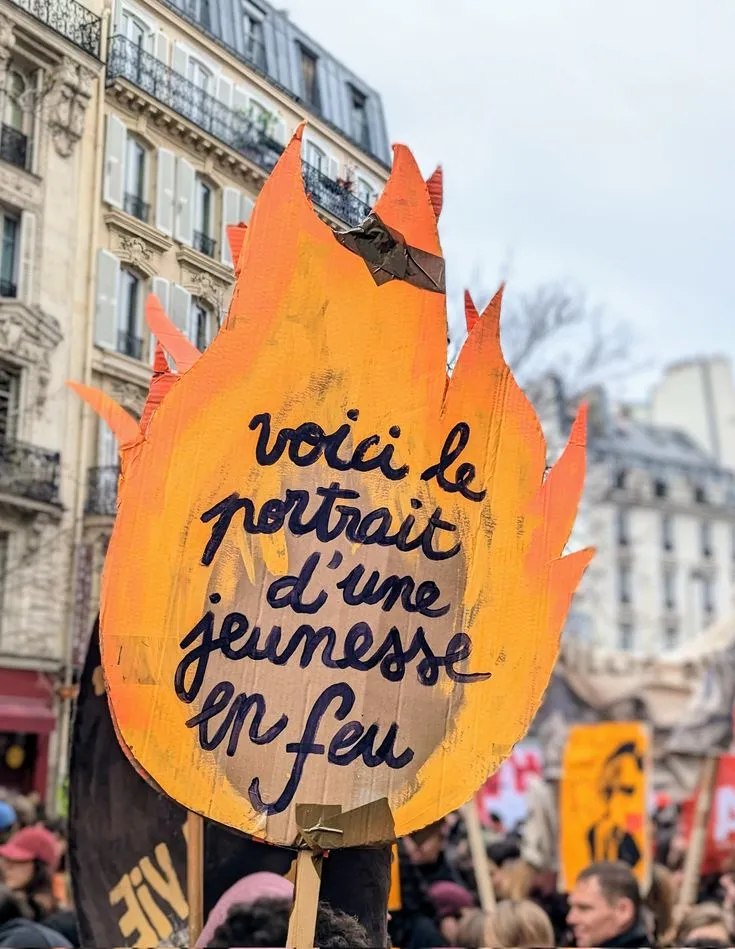 voici le
portrait
d'une
jeunesse
en feu
VIE